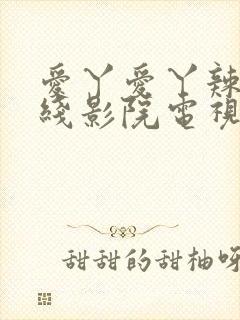 愛丫愛丫辣
綫影院電視
甜甜的甜柚呀